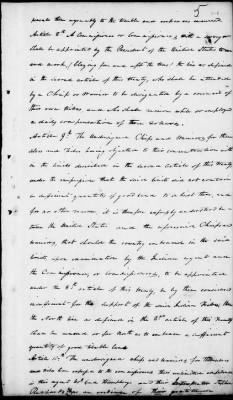 5
pense their equally to the trouble and
Article 8th A Commissioner or Commissioners, with a Surveyor
shall be appointed by the President of the United States to run
and mark (blazing fore and aft the trees) the line as defined
in the second article of this treaty, who shall be attended
by a Chief or Warrior to be designated by a council of
their own tribes, and who shall receive while so employed
a daily compensation of three dollars.
Article 9th The undersigned Chiefs and Warriors, for themselves
and Tribes having objection to their concentration within
the limits described in the second article of this treaty
under the impression that the said limits did not contain
a sufficient quantity of good land to subsist them, and
for no other reason, it is therefore expressly understood be-
tween the United States and the aforesaid Chiefs and
Warriors, that should the country embraced in the said
limits, upon examination by the Indian agent and
the Commissioner, or Commissioners, to be appointed
under the 8th article of this treaty be by them considered
insufficient for the support of the said Indian Tribes, then
the North line as defined in the 2d article of this treaty
shall be removed so far north as to embrace a sufficient
quantity of good tillable land.
Article 10th The undersigned chiefs and Warriors for themselves
and tribes have expressed to the Commissioners their unlimited confidence
in their agent Col. Gad Humphreys and their Interpreter Stephen
Richards, as an evidence of their gratitude